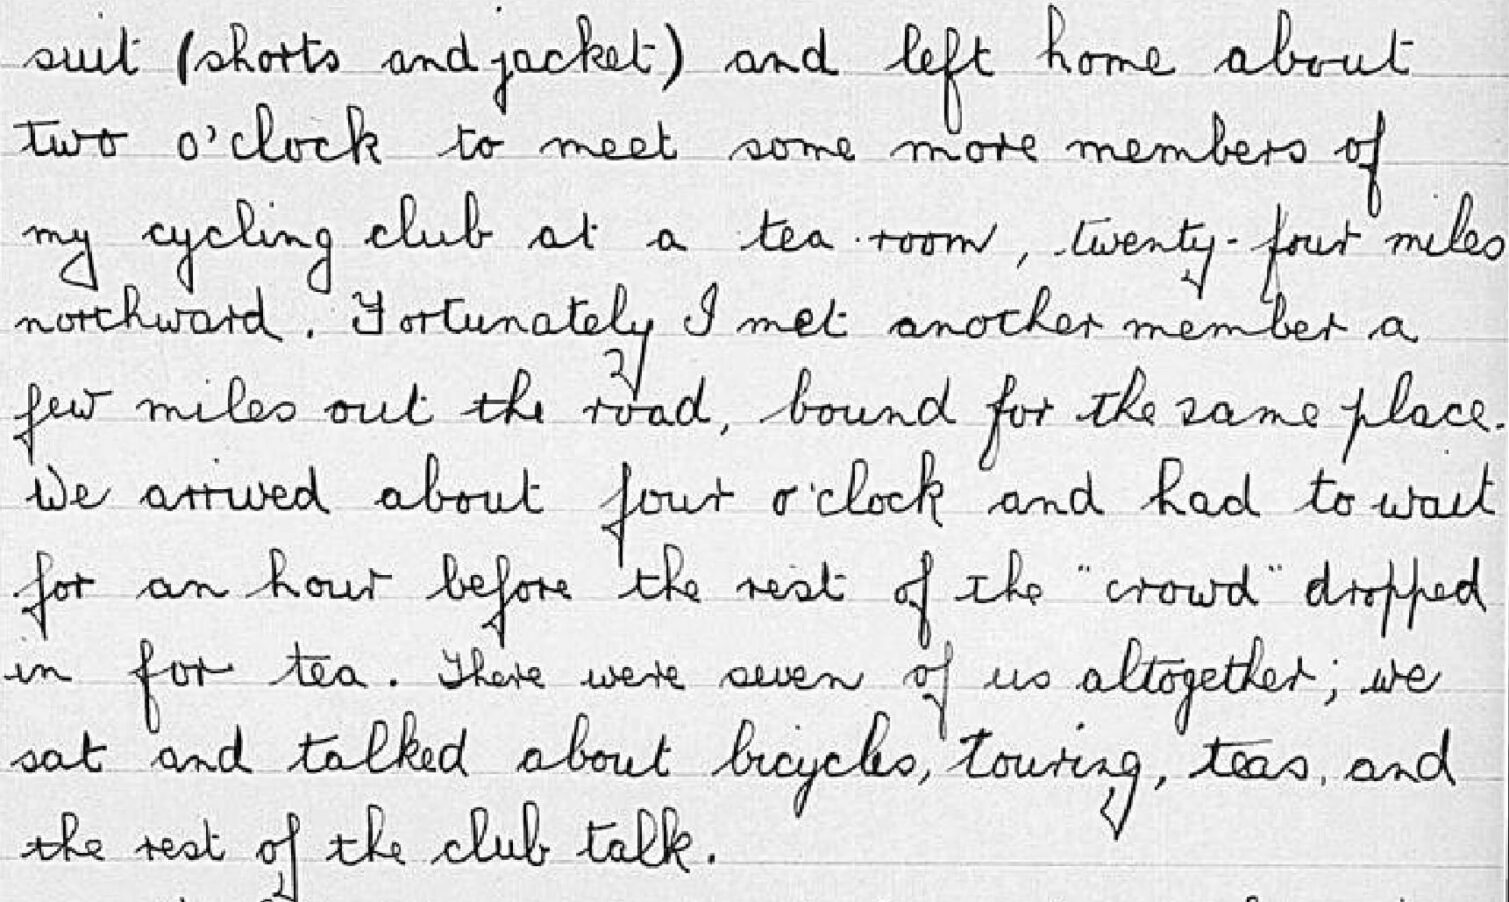 suit (shorts and jacket) and left home about
two o'clock to meet some more members of
my cycling club at a tea room, twenty-four miles
northward. Fortunately I met another member a
few miles out the road, bound for the same place.
We arrived about four o'clock and had to wait
for an hour before the rest of the "crowd" dropped
in for tea. There were seven of us altogether; we
sat and talked about bicycles, touring, teas, and
the rest of the club talk.